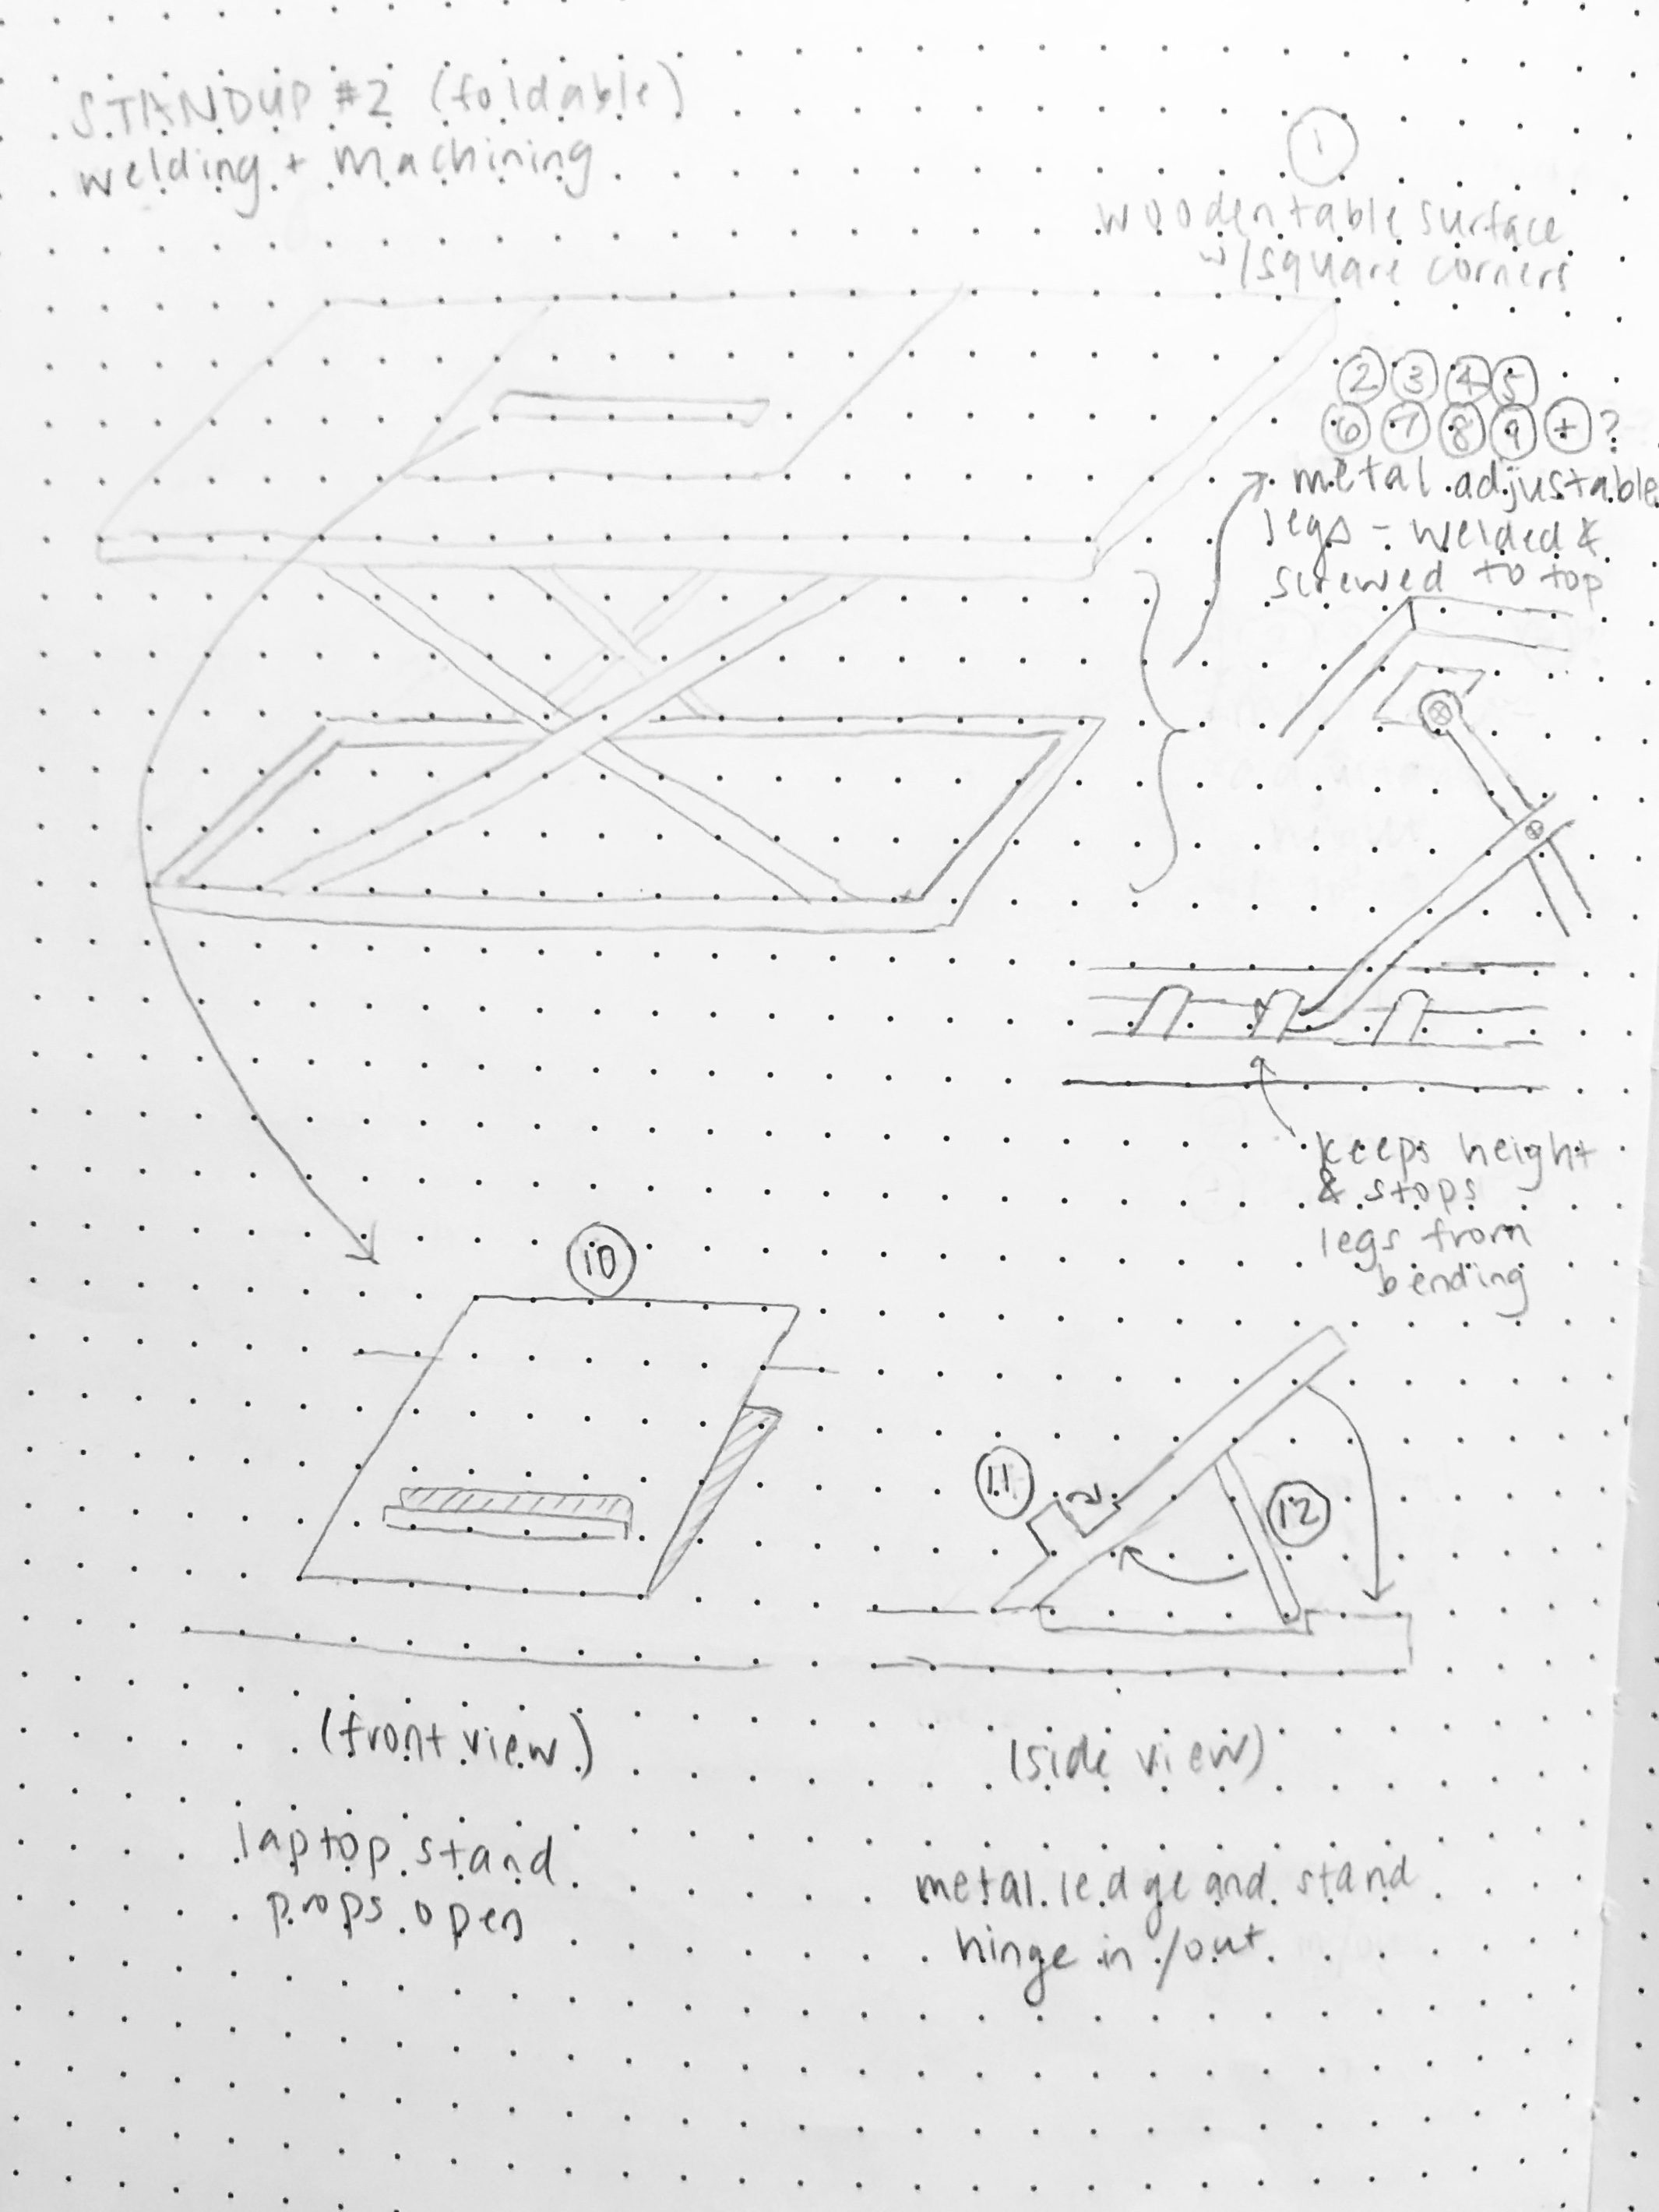 STANDUP #2 (foldable)
welding + machining
1
wooden table surface
w/square corners
2 3 4 5
6 7 8 9 + ?
metal adjustable
legs - welded &
screwed to top
keeps height
& stops
legs from
bending
10
11
12
(front view)
(side view)
laptop stand
props open
metal ledge and stand
hinge in/out